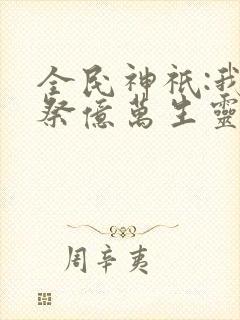 全民神祇:我
祭億萬生靈
周辛夷